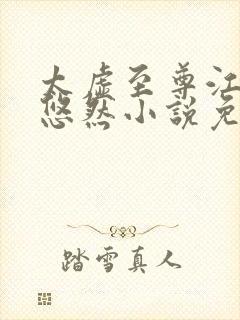 太虚至尊江
悠然小説免
踏雪真人